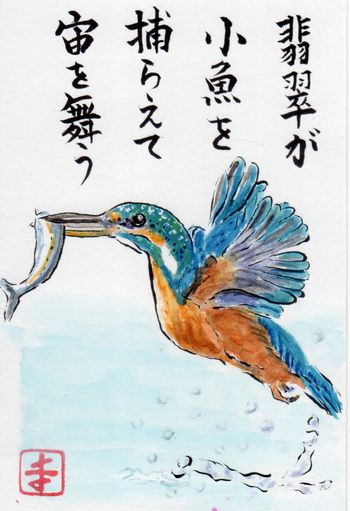 翡翠が
小魚を
捕らえて
宙を舞う